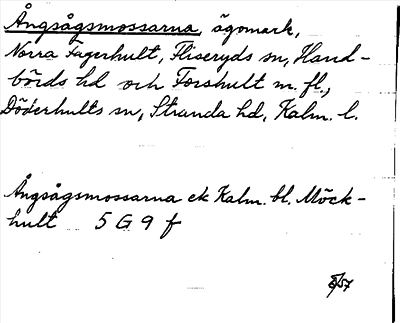 Ångsågsmossarna, ägomark,
Norra Fagerhult, Fliseryds sn, Hand-
börds hd och Forshult m. fl.,
Döderhults sn, Stranda hd, Kalm. l.
Ångsågsmossarna ek Kalm. bl. Möck-
hult 5 G 9 f
/57